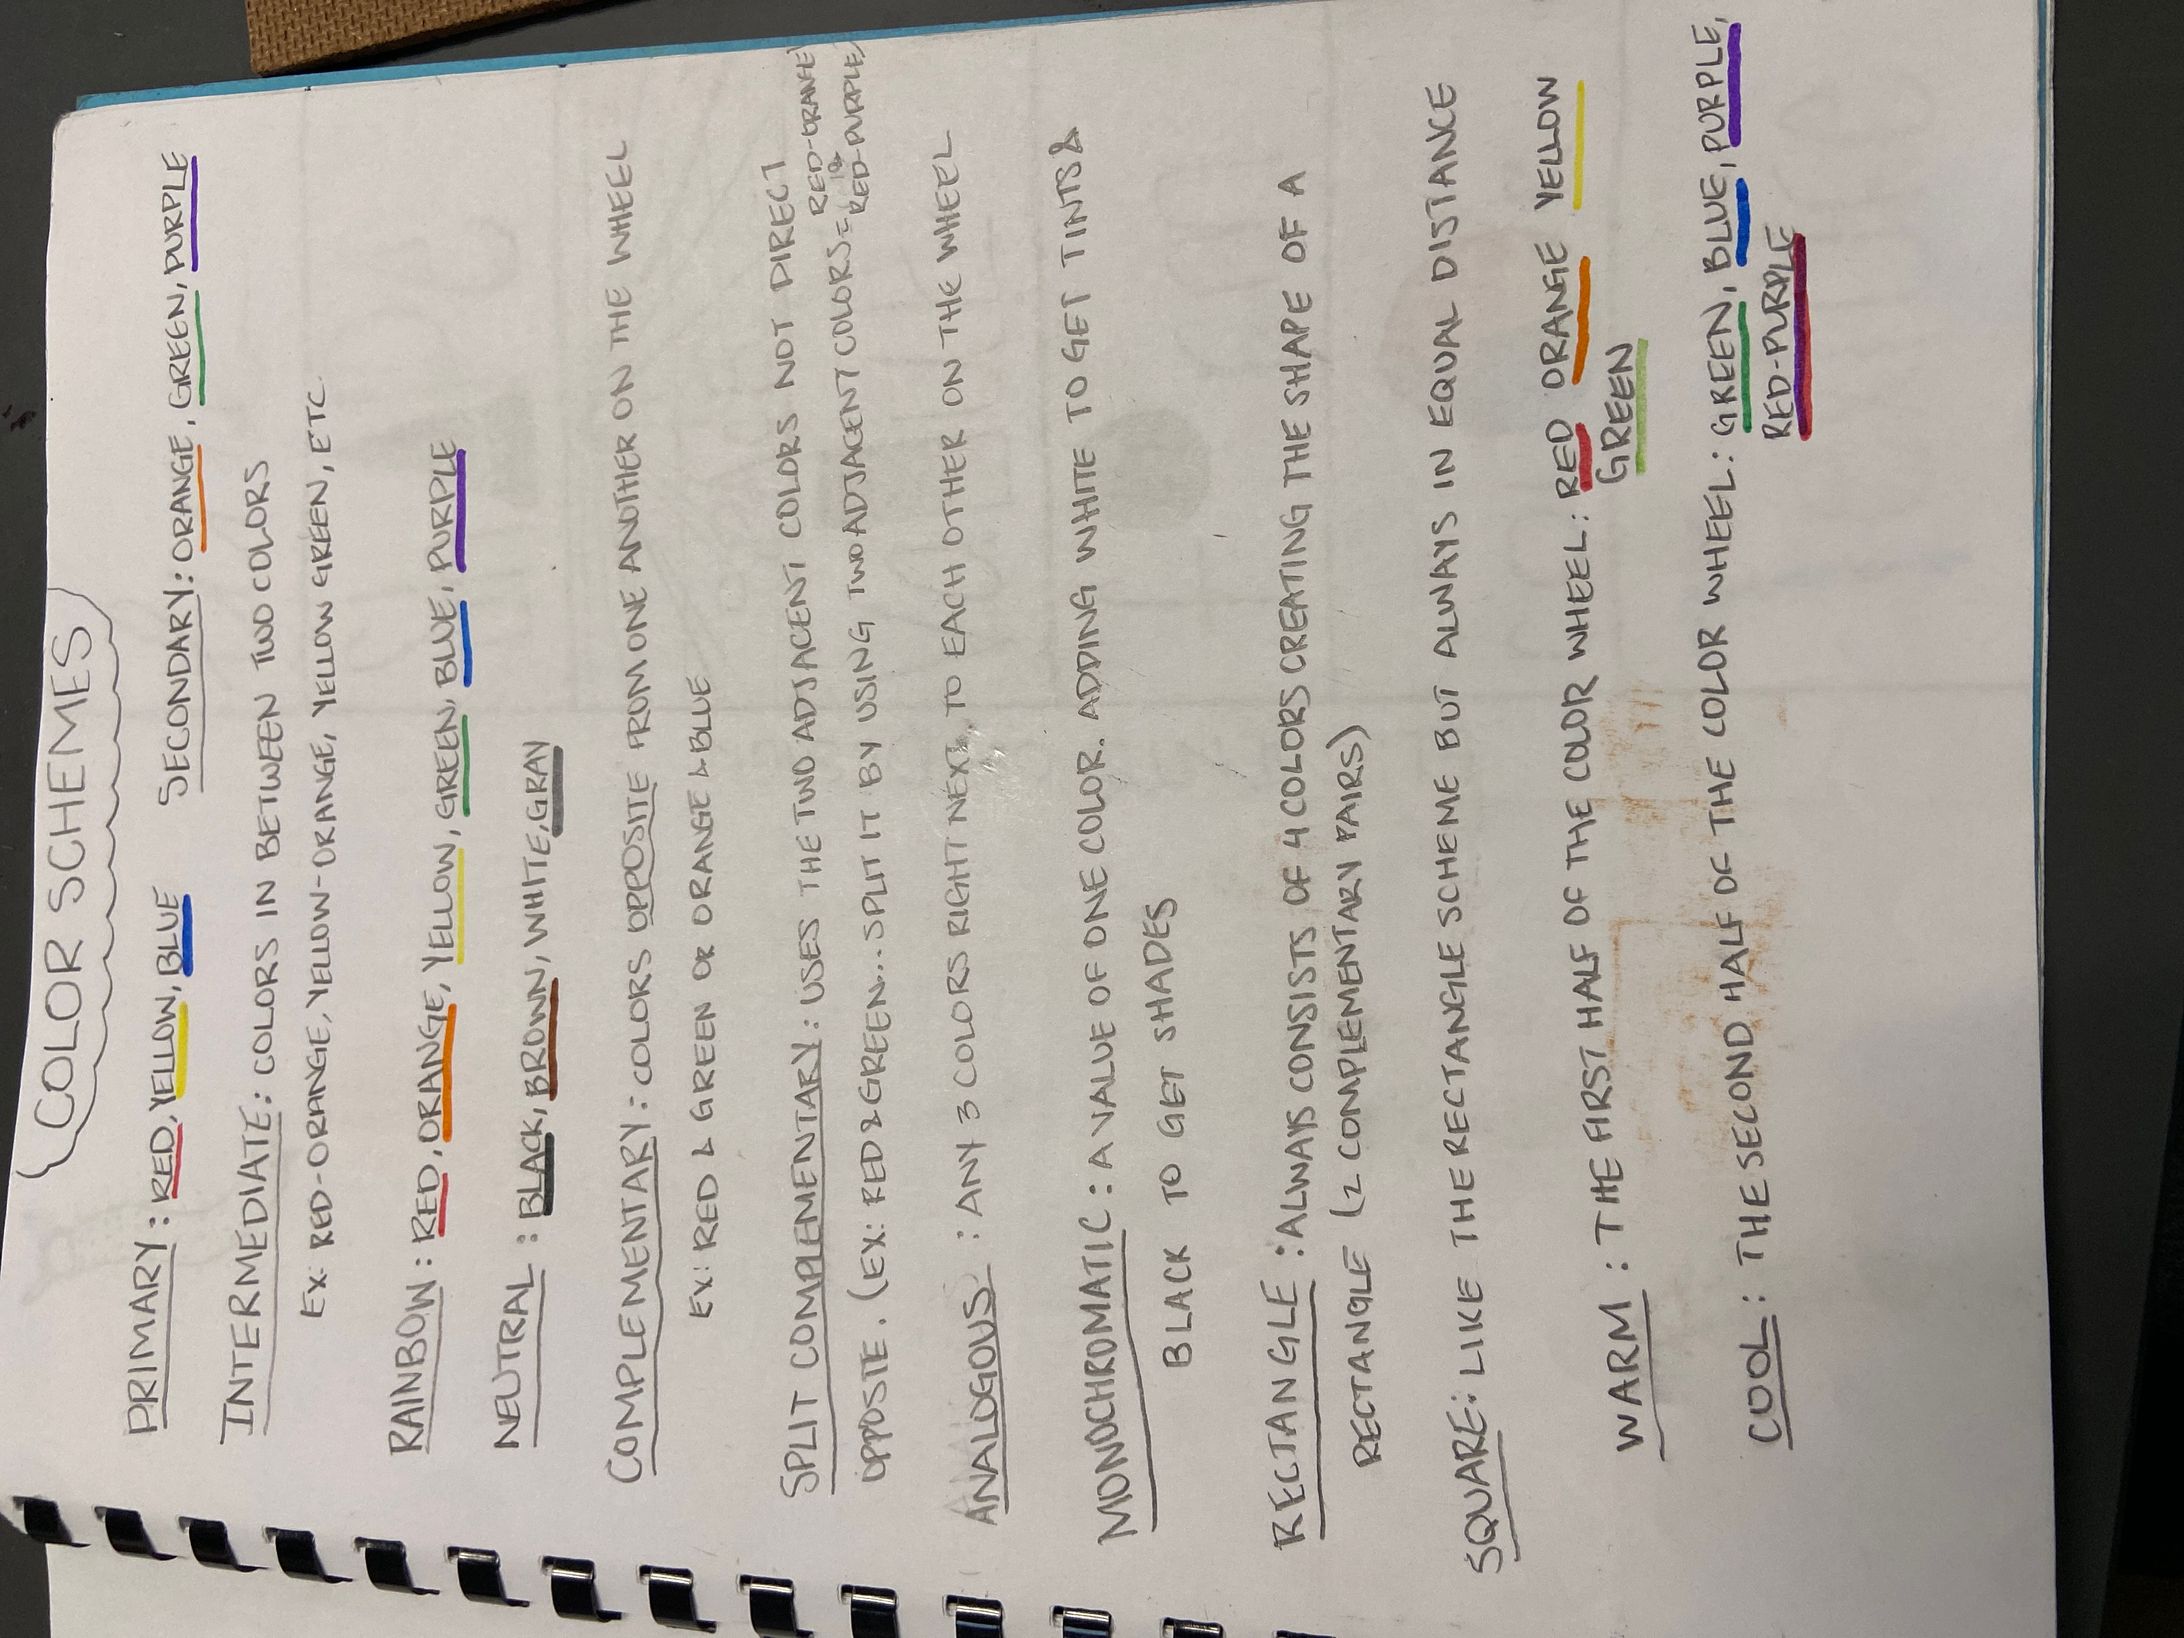 COLOR SCHEMES
PRIMARY: RED, YELLOW, BLUE SECONDARY: ORANGE, GREEN, PURPLE
INTERMEDIATE: COLORS IN BETWEEN TWO COLORS
EX: RED-ORANGE, YELLOW-ORANGE, YELLOW GREEN, ETC
RAINBOW: RED, ORANGE, YELLOW, GREEN, BLUE, PURPLE
NEUTRAL: BLACK, BROWN, WHITE, GRAY
COMPLEMENTARY: COLORS OPPOSITE FROM ONE ANOTHER ON THE WHEEL
EX: RED & GREEN OR ORANGE & BLUE
SPLIT COMPLEMENTARY: USES THE TWO ADJACENT COLORS NOT DIRECT
OPPOSITE. (EX: RED & GREEN... SPLIT IT BY USING TWO ADJACENT COLORS = RED-ORANGE & RED-PURPLE)
ANALOGOUS: ANY 3 COLORS RIGHT NEXT TO EACH OTHER ON THE WHEEL
MONOCHROMATIC: A VALUE OF ONE COLOR. ADDING WHITE TO GET TINTS &
BLACK TO GET SHADES
RECTANGLE: ALWAYS CONSISTS OF 4 COLORS CREATING THE SHAPE OF A
RECTANGLE (2 COMPLEMENTARY PAIRS)
SQUARE: LIKE THE RECTANGLE SCHEME BUT ALWAYS IN EQUAL DISTANCE
WARM: THE FIRST HALF OF THE COLOR WHEEL: RED ORANGE YELLOW
GREEN
COOL: THE SECOND HALF OF THE COLOR WHEEL: GREEN, BLUE, PURPLE,
RED-PURPLE